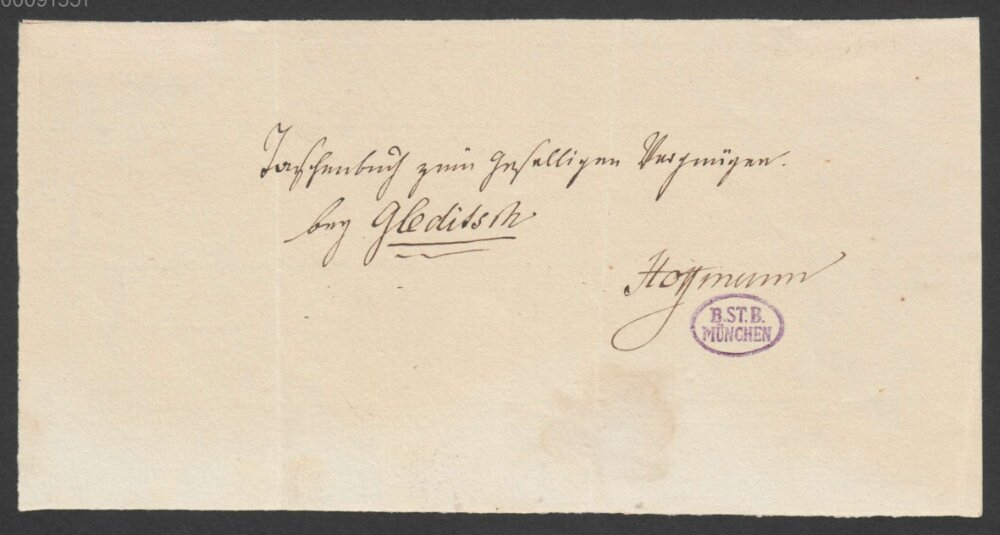 00091551
Taschenbuch zum geselligen Vergnügen.
bey Gleditsch
Hoffmann
B.ST.B.
MÜNCHEN